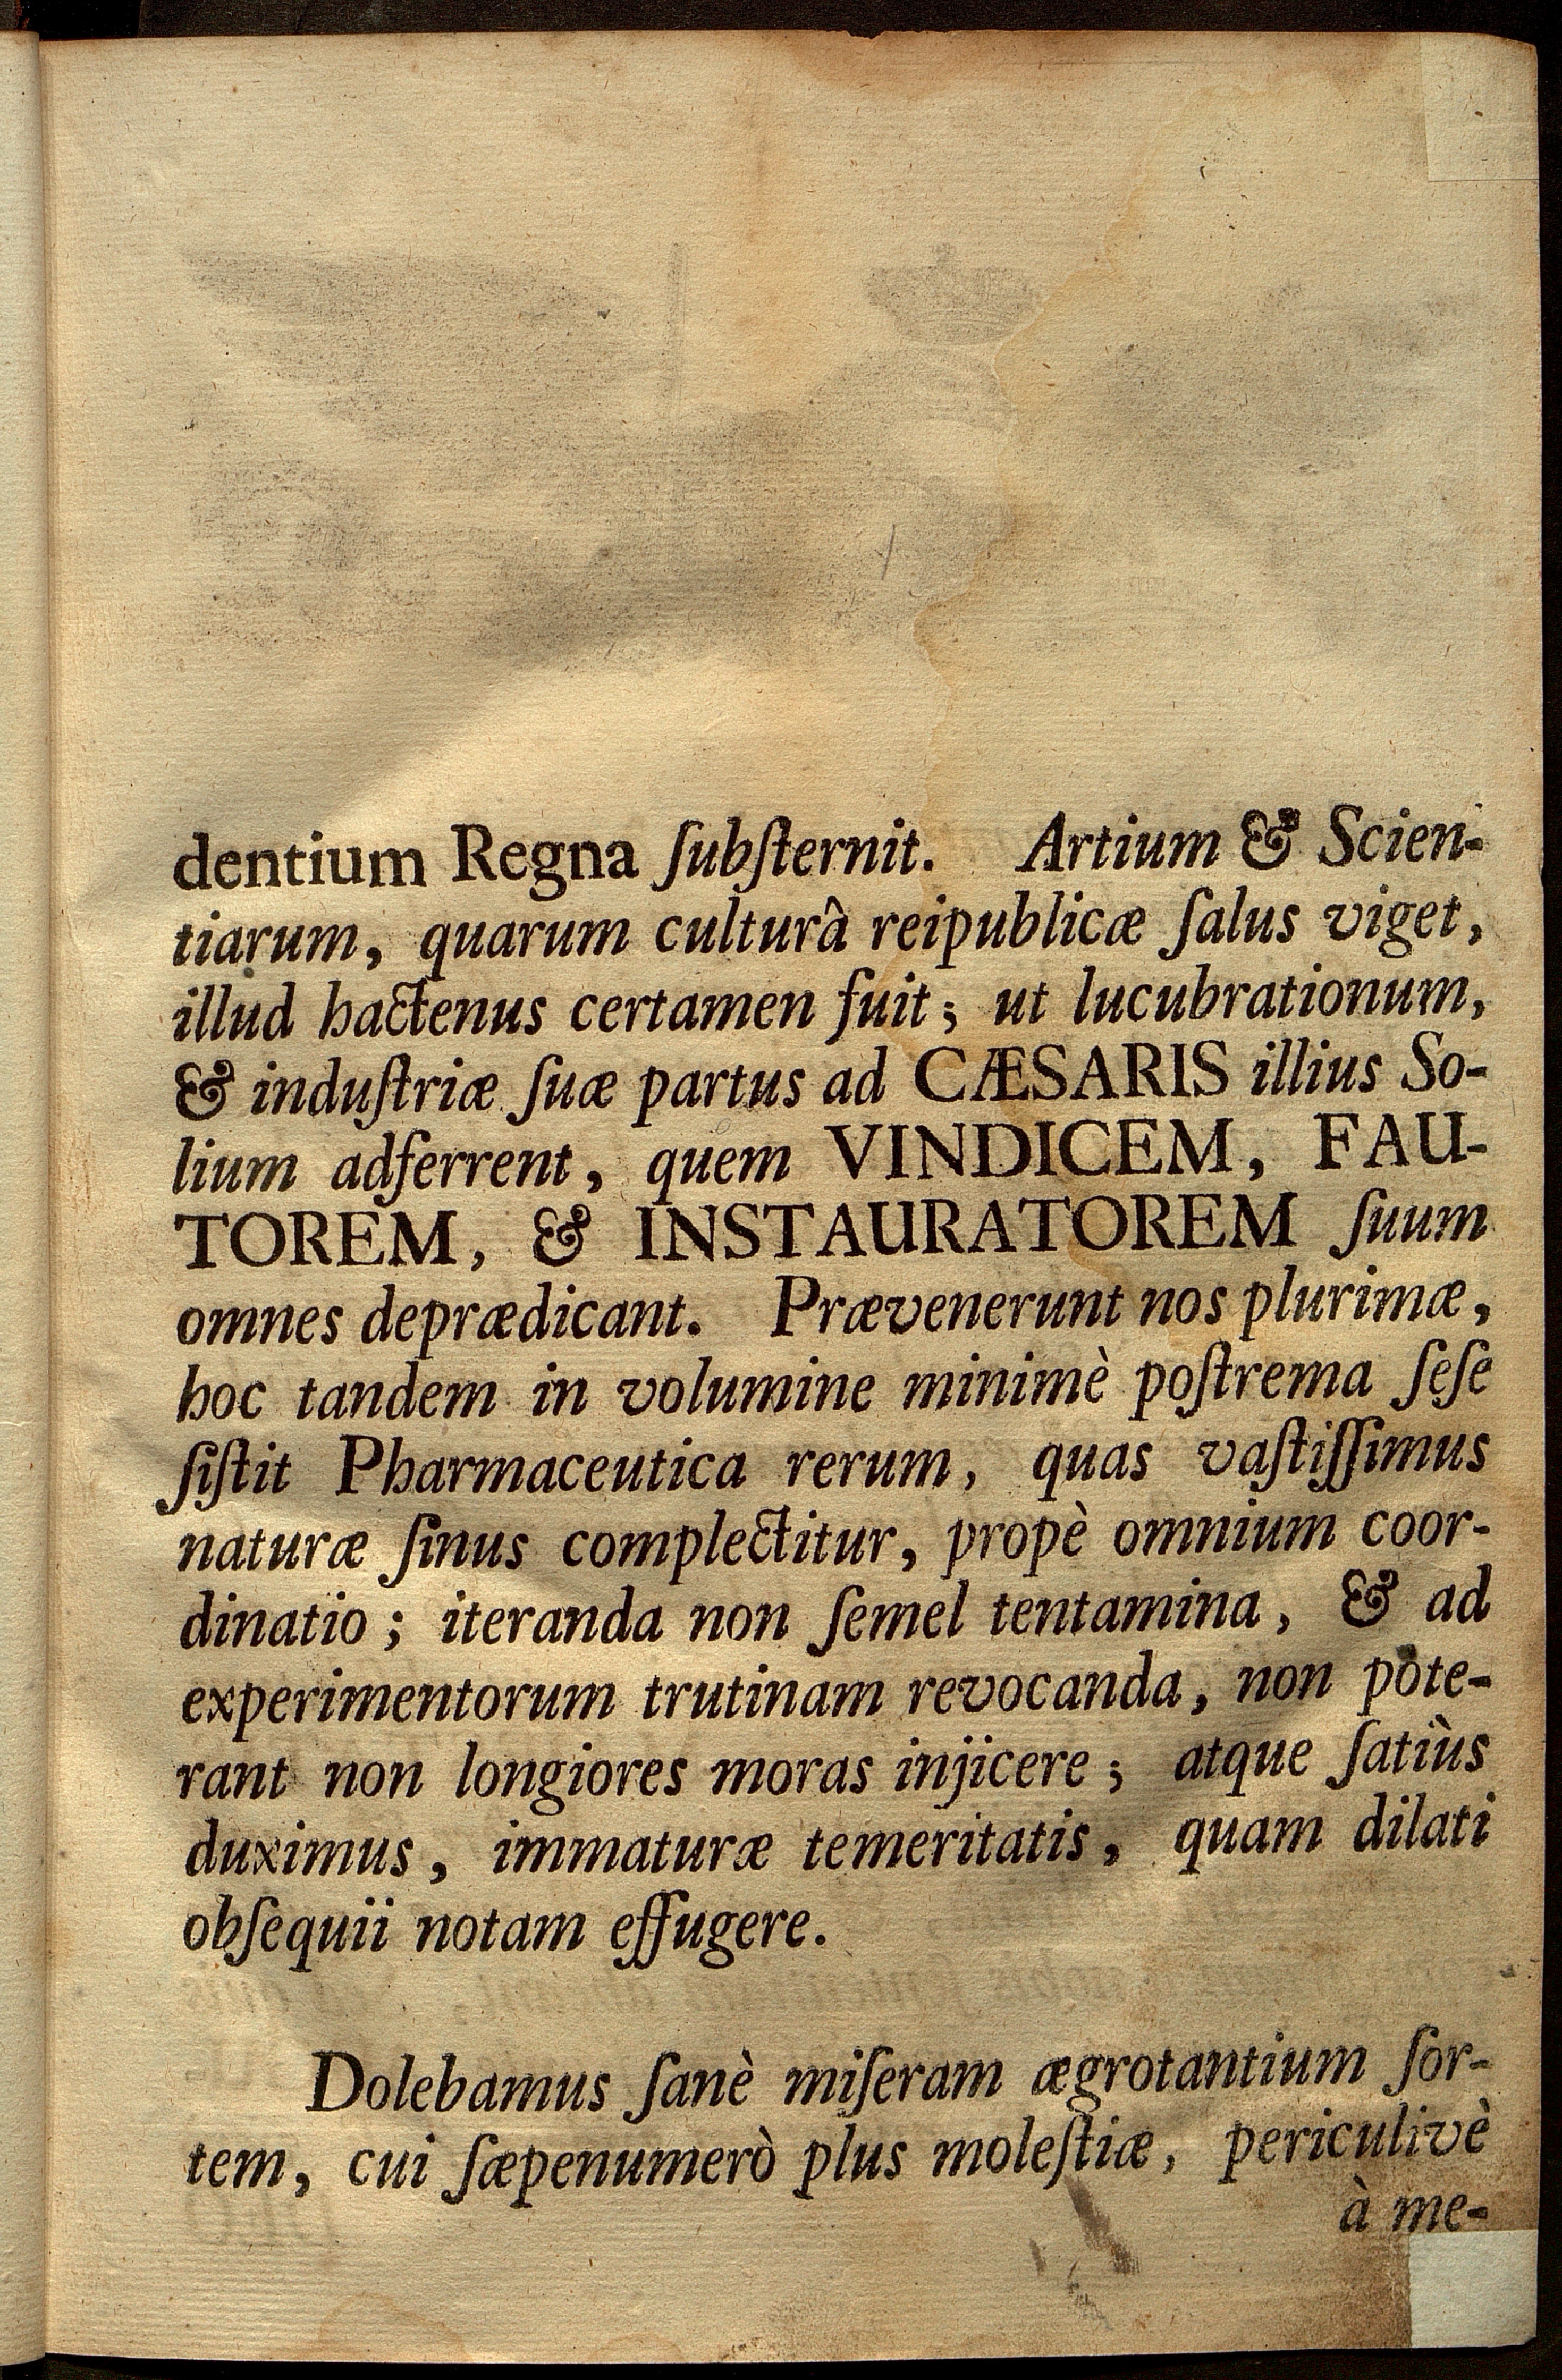 dentium Regna ſubſternit. Artium & Scien-
tiarum, quarum culturâ reipublicæ ſalus viget,
illud hactenus certamen fuit; ut lucubrationum,
& induſtriæ ſuæ partus ad CÆSARIS illius So-
lium adferrent, quem VINDICEM, FAU-
TOREM, & INSTAURATOREM ſuum
omnes deprædicant. Prævenerunt nos plurimæ,
hoc tandem in volumine minimè poſtrema ſeſe
ſiſtit Pharmaceutica rerum, quas vaſtiſſimus
naturæ ſinus complectitur, propè omnium coor-
dinatio; iteranda non ſemel tentamina, & ad
experimentorum trutinam revocanda, non pote-
rant non longiores moras injicere; atque ſatiùs
duximus, immaturæ temeritatis, quam dilati
obſequii notam effugere.
Dolebamus ſanè miſeram ægrotantium ſor-
tem, cui ſæpenumerò plus moleſtiæ, periculivè
à me-